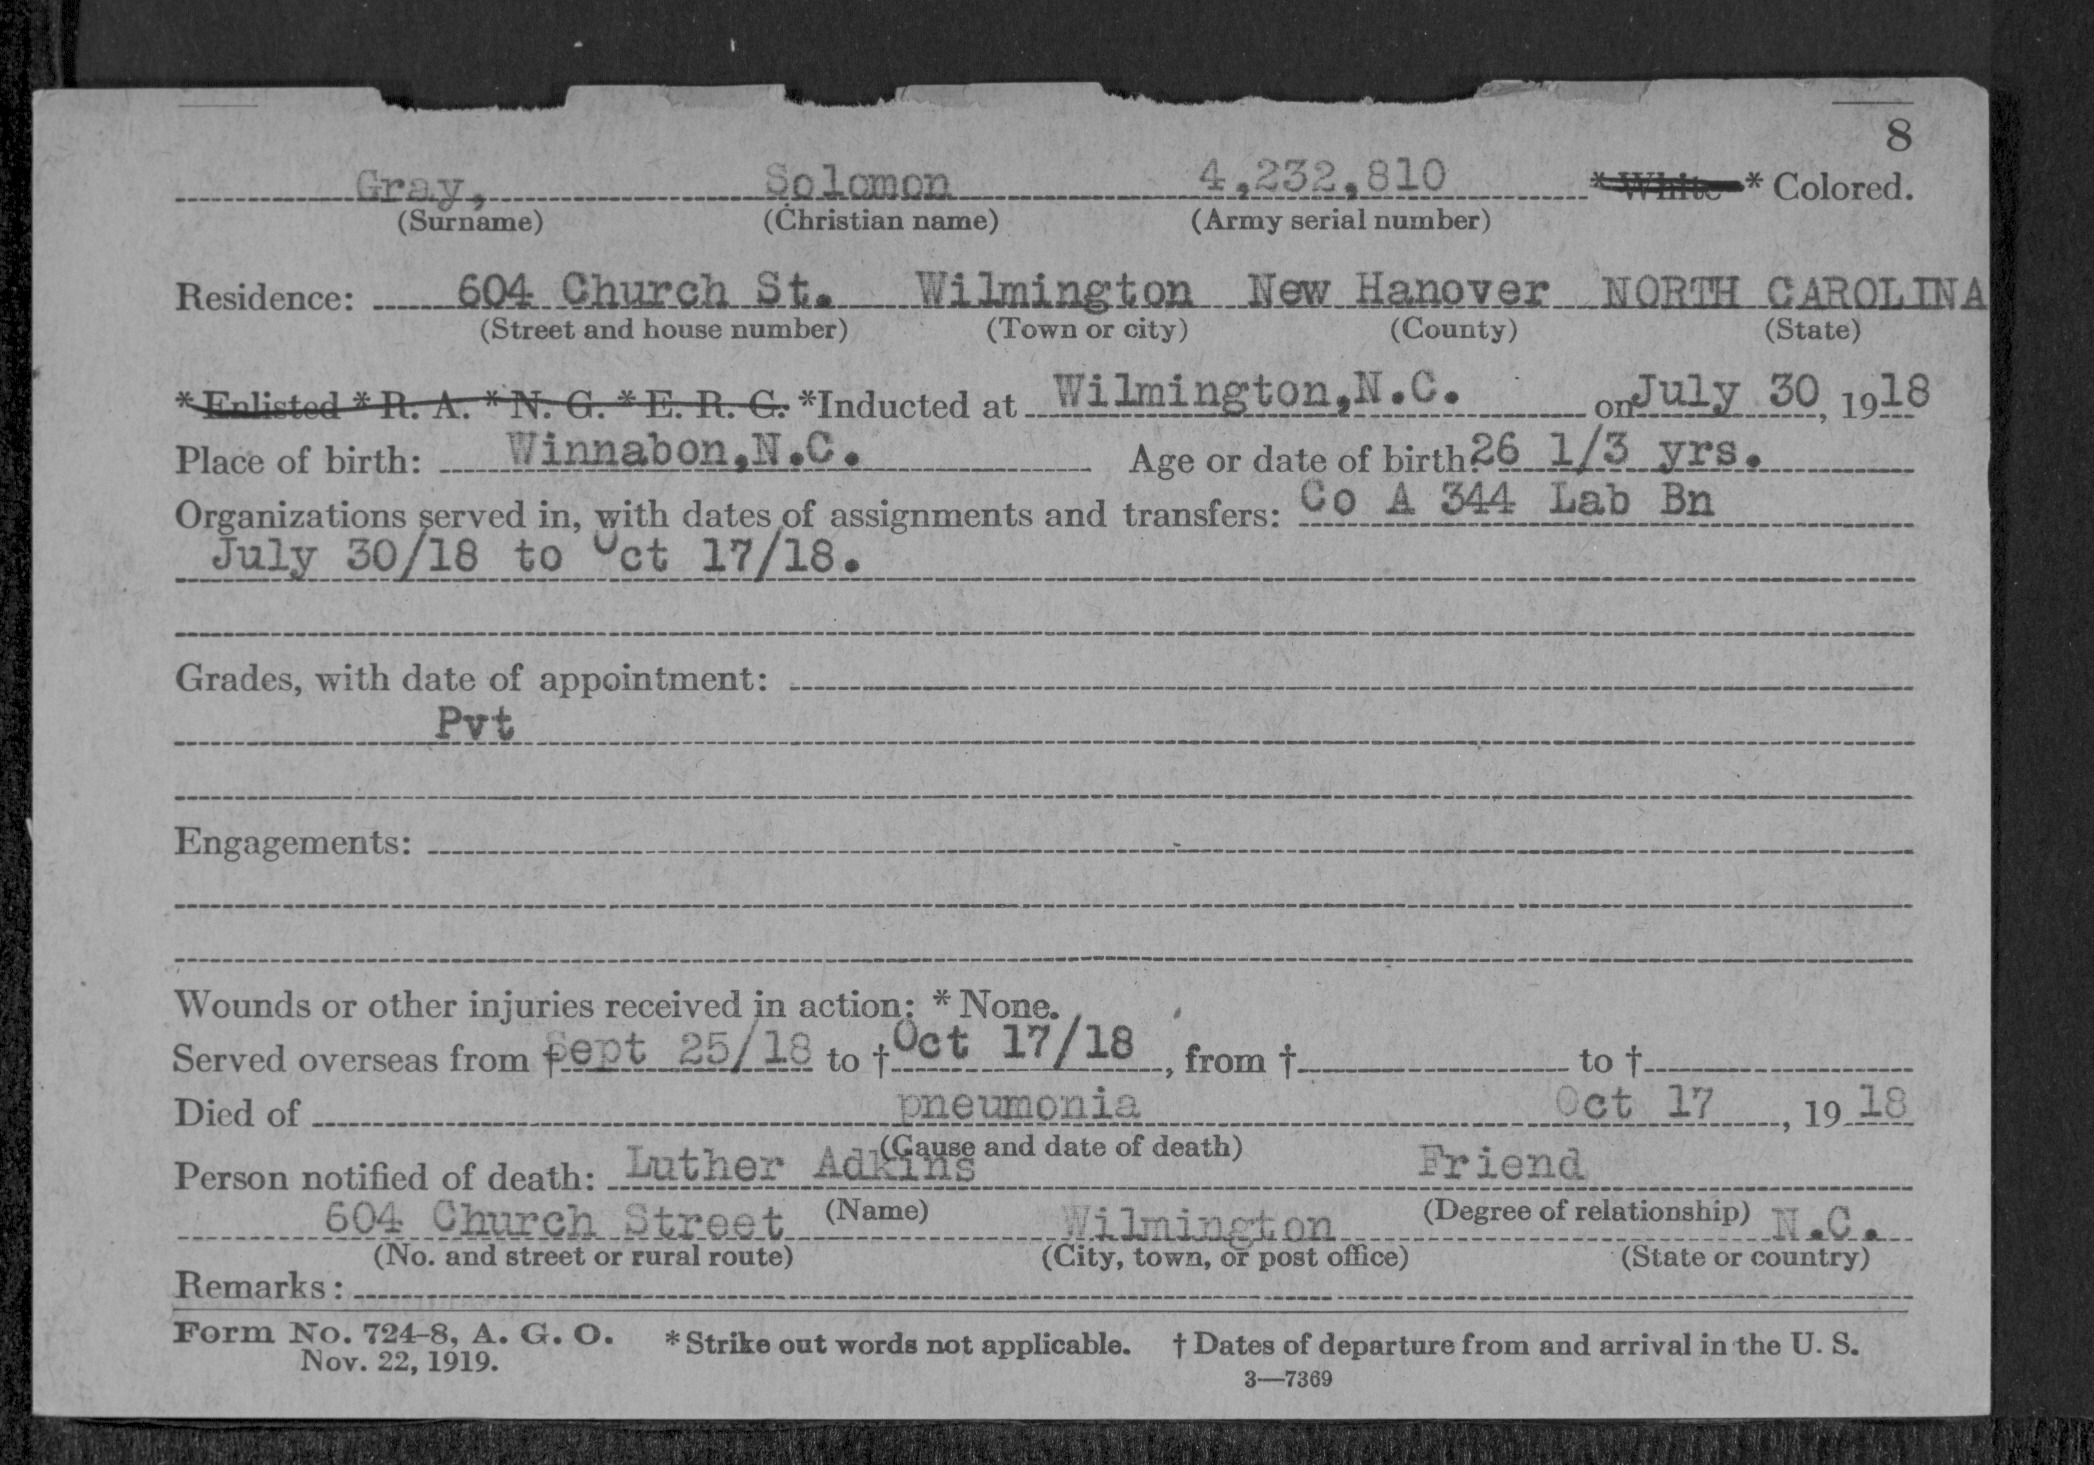 8
Gray, Solomon 4,232,810 * White * Colored.
(Surname) (Christian name) (Army serial number)
Residence: 604 Church St. Wilmington New Hanover NORTH CAROLINA
(Street and house number) (Town or city) (County) (State)
* Enlisted * R. A. * N. G. * E. R. C. *Inducted at Wilmington,N.C. on July 30, 1918
Place of birth: Winnabon,N.C. Age or date of birth: 26 1/3 yrs.
Organizations served in, with dates of assignments and transfers: Co A 344 Lab Bn
July 30/18 to Oct 17/18.
Grades, with date of appointment:
Pvt
Engagements:
Wounds or other injuries received in action: * None.
Served overseas from † Sept 25/18 to † Oct 17/18, from † to †
Died of pneumonia Oct 17, 19 18
(Cause and date of death)
Person notified of death: Luther Adkins Friend
(Name) (Degree of relationship)
604 Church Street Wilmington N.C.
(No. and street or rural route) (City, town, or post office) (State or country)
Remarks:
Form No. 724-8, A. G. O. * Strike out words not applicable. † Dates of departure from and arrival in the U. S.
Nov. 22, 1919.
3—7369